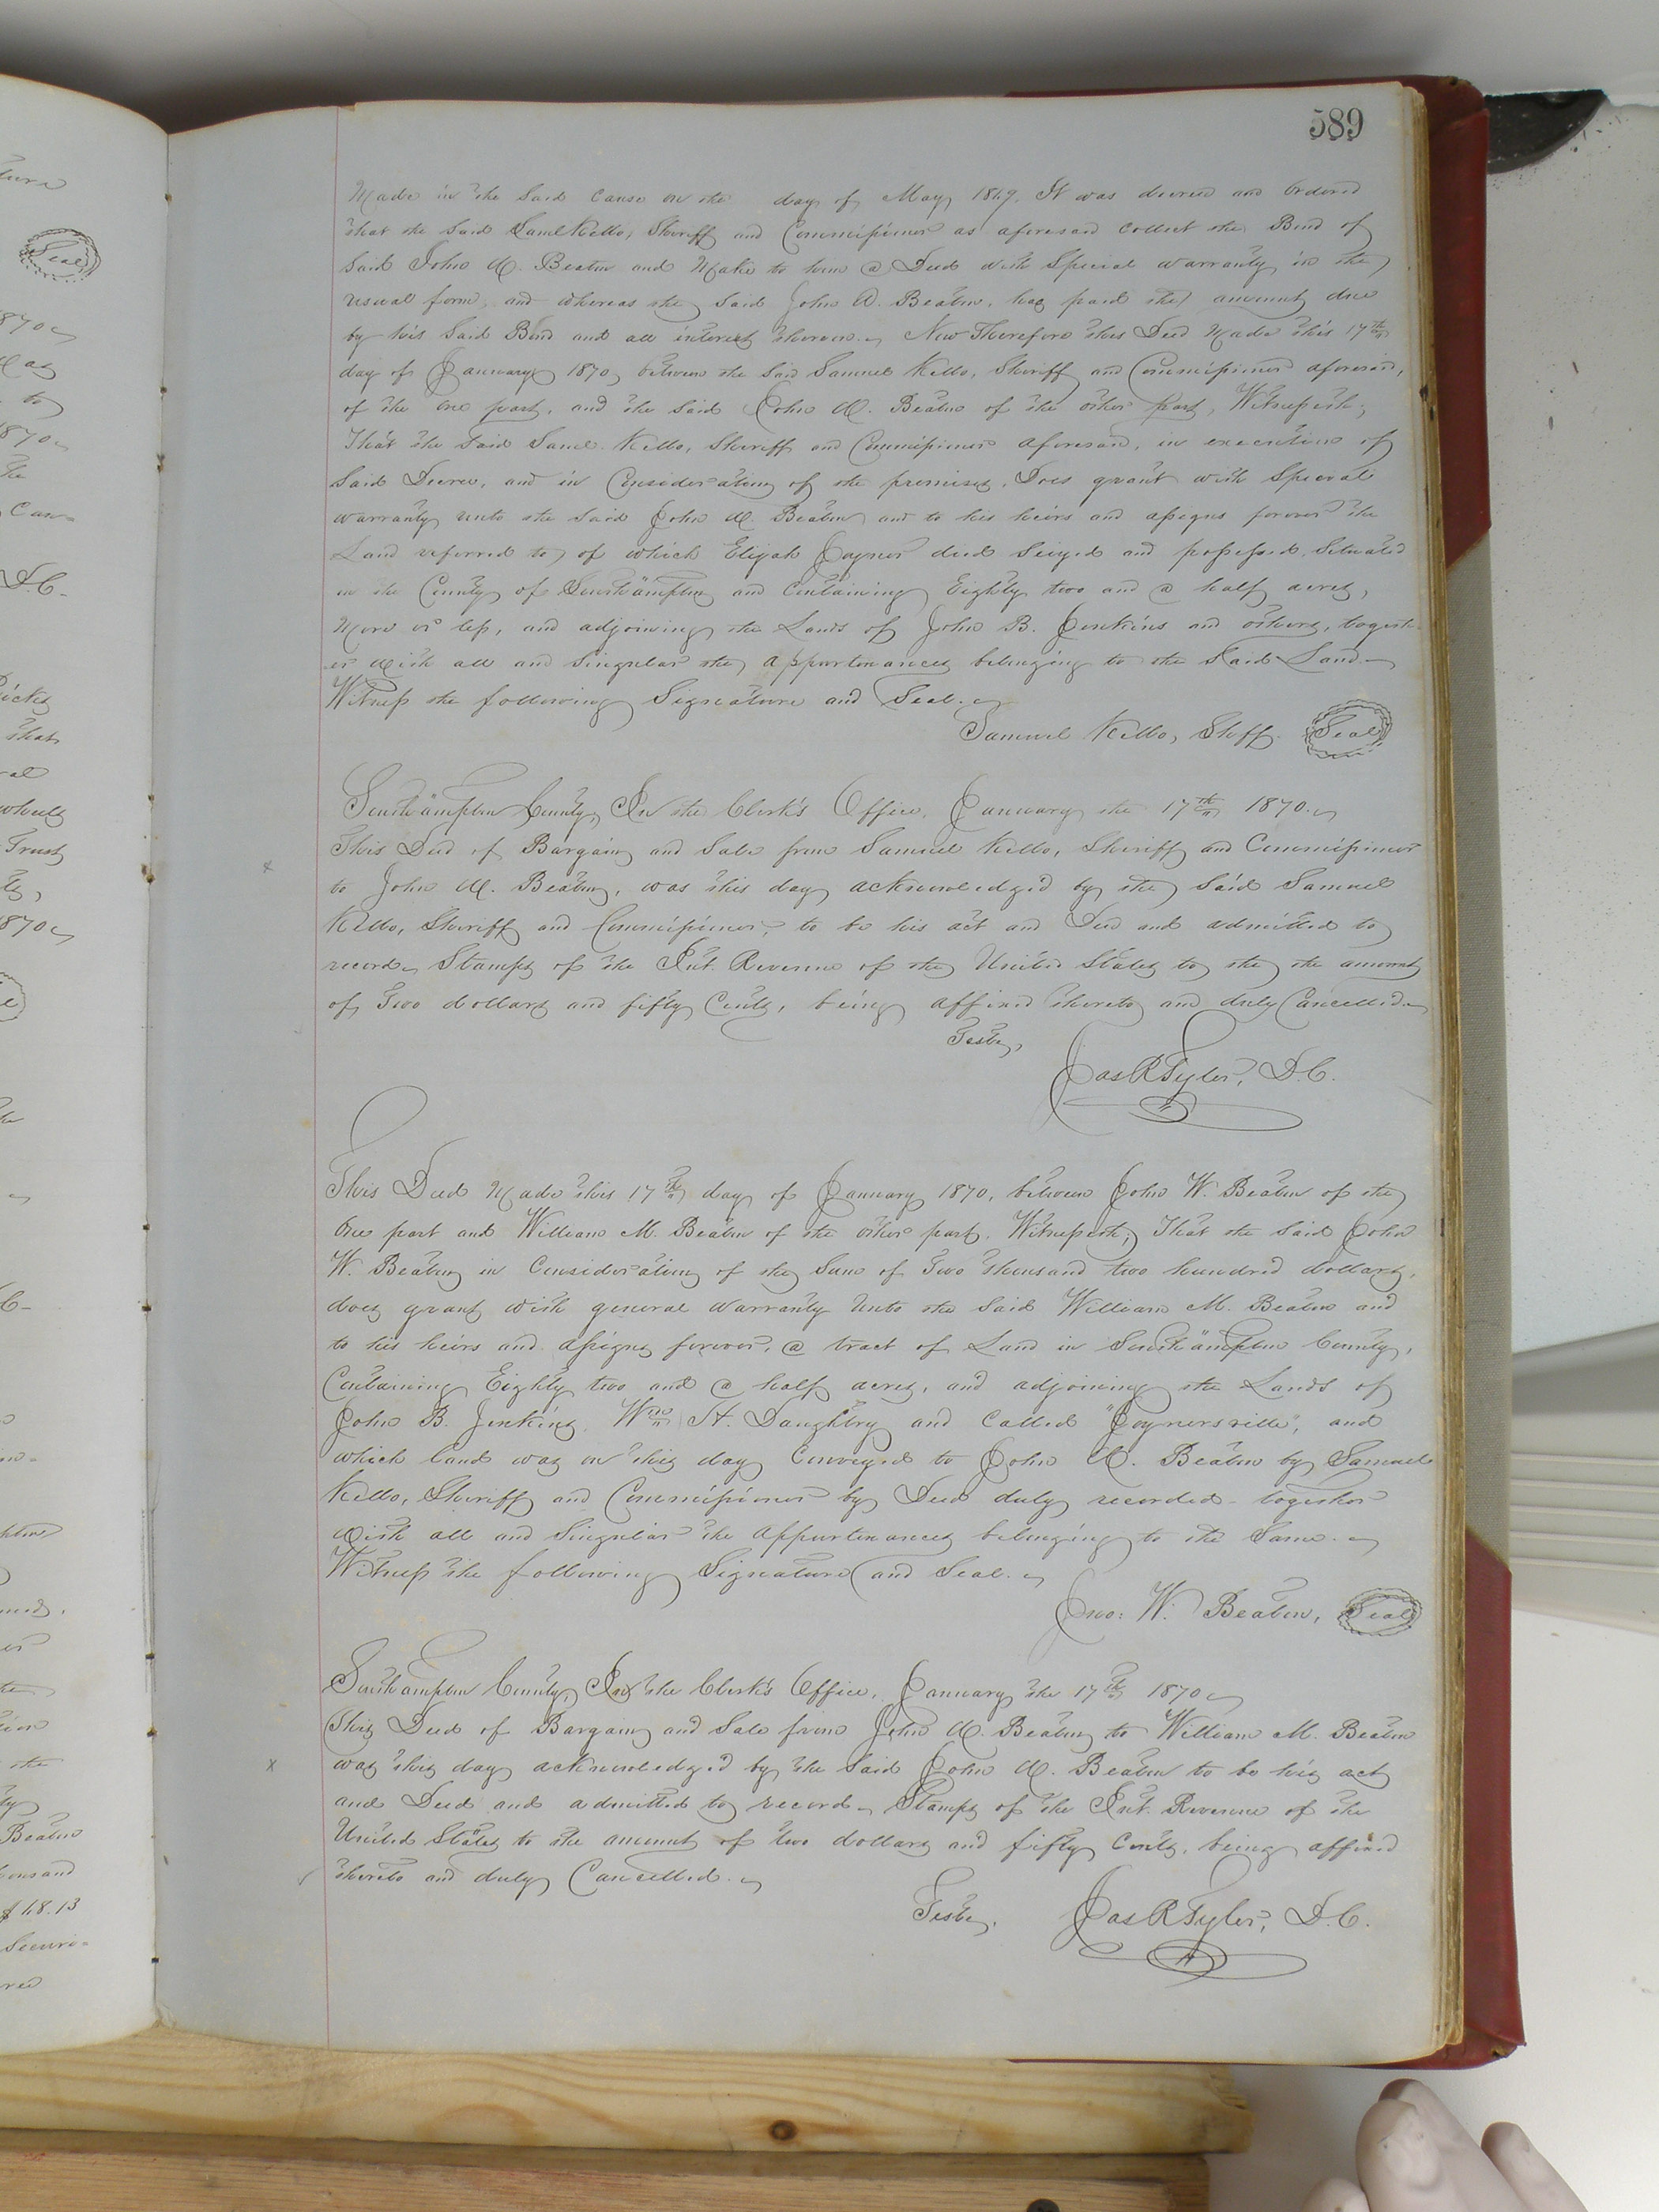 589
Made in the said cause on the day of May 1869. It was decreed and ordered
that the said Saml Kello, Sheriff and Commissioner as aforesaid collect the Bond of
said John W. Beaton and Make to him a Deed with Special warranty in the
usual form, and whereas the said John W. Beaton, has paid the amount due
by his said Bond and all interest thereon. Now Therefore this Deed Made this 17th
day of January 1870, between the said Samuel Kello, Sheriff and Commissioner aforesaid,
of the one part, and the said John W. Beaton of the other part, Witnesseth,
That the said Saml. Kello, Sheriff and Commissioner aforesaid, in execution of
said Decree, and in Consideration of the premises, Does grant with Special
warranty unto the said John W. Beaton and to his heirs and assigns forever the
Land referred to, of which Elijah Joyner died seized and possessed, situated
in the County of Southampton and Containing Eighty two and a half acres,
More or less, and adjoining the Lands of John B. Jenkins and others, togeth-
er with all and singular the appurtenances belonging to the said Land
Witness the following Signature and Seal.
Samuel Kello, Shff. Seal
Southampton County, In the Clerk's Office, January the 17th 1870.
This Deed of Bargain and Sale from Samuel Kello, Sheriff and Commissioner
to John W. Beaton, was this day acknowledged by the said Samuel
Kello, Sheriff and Commissioner, to be his act and Deed and admitted to
record. Stamps of the Int. Revenue of the United States to the the amount
of Two dollars and fifty Cents, being affixed thereto and duly Cancelled.
Teste,
Jas R Tyler, D.C.
This Deed Made this 17th day of January 1870, between John W. Beaton of the
one part and William M. Beaton of the other part, Witnesseth, That the said John
W. Beaton in Consideration of the Sum of Two thousand two hundred dollars,
does grant with general warranty unto the said William M. Beaton and
to his heirs and assigns forever, a tract of Land in Southampton County,
Containing Eighty two and a half acres, and adjoining the Lands of
John B. Jenkins, Wm H. Daughtry and called "Joynersville", and
which land was on this day Conveyed to John W. Beaton by Samuel
Kello, Sheriff and Commissioner by Deed duly recorded together
with all and singular the appurtenances belonging to the Same.
Witness the following Signature and Seal.
Jno: W. Beaton, Seal
Southampton County, In the Clerk's Office, January the 17th 1870
This Deed of Bargain and Sale from John W. Beaton to William M. Beaton
was this day acknowledged by the said John W. Beaton to be his act
and Deed and admitted to record. Stamps of the Int. Revenue of the
United States to the amount of two dollars and fifty Cents, being affixed
thereto and duly Cancelled.
Teste, Jas R Tyler, D.C.